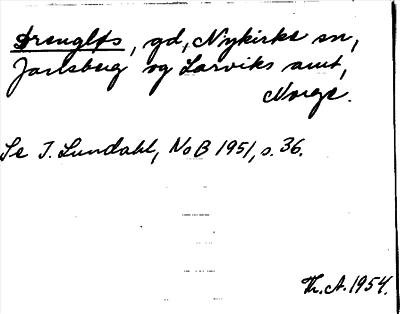 Drengløs, gd, Nykirke sn,
Jarlsberg og Larviks amt,
Norge.
Se I. Lundahl, NoB 1951, s. 36.
Th. A. 1954.